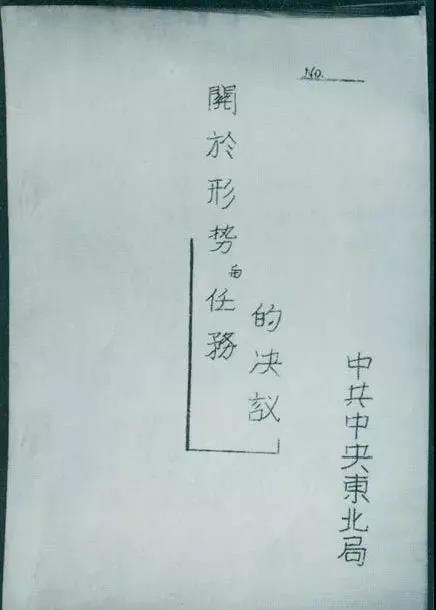 No.
關於形势与任務
的决議
中共中央東北局